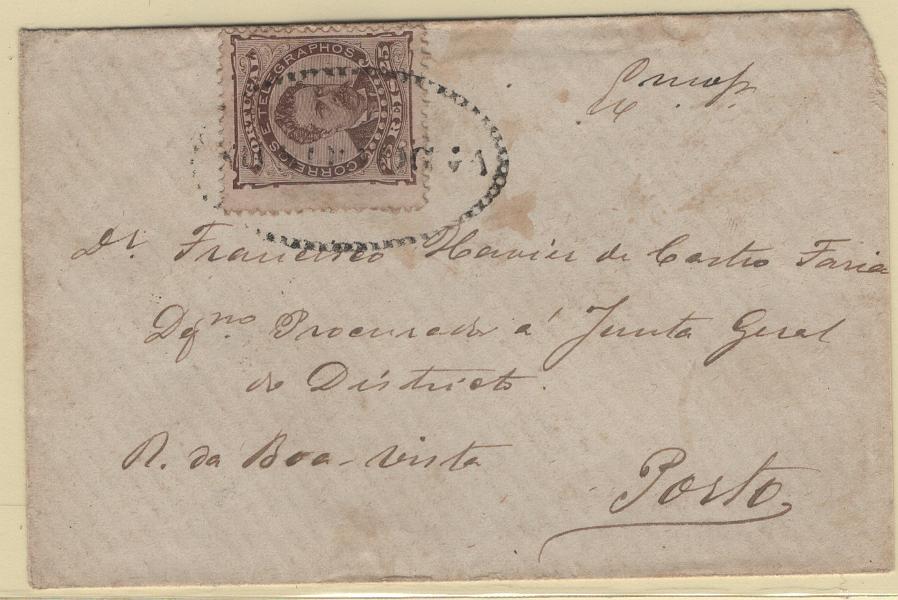 PORTUGAL
CORREIOS E TELEGRAPHOS
25 REIS 25
Exmo Sr.
Dr. Francisco Xavier de Castro Faria
Dgno. Procurador á Junta Geral
do Districto.
R. da Boa-vista
Porto